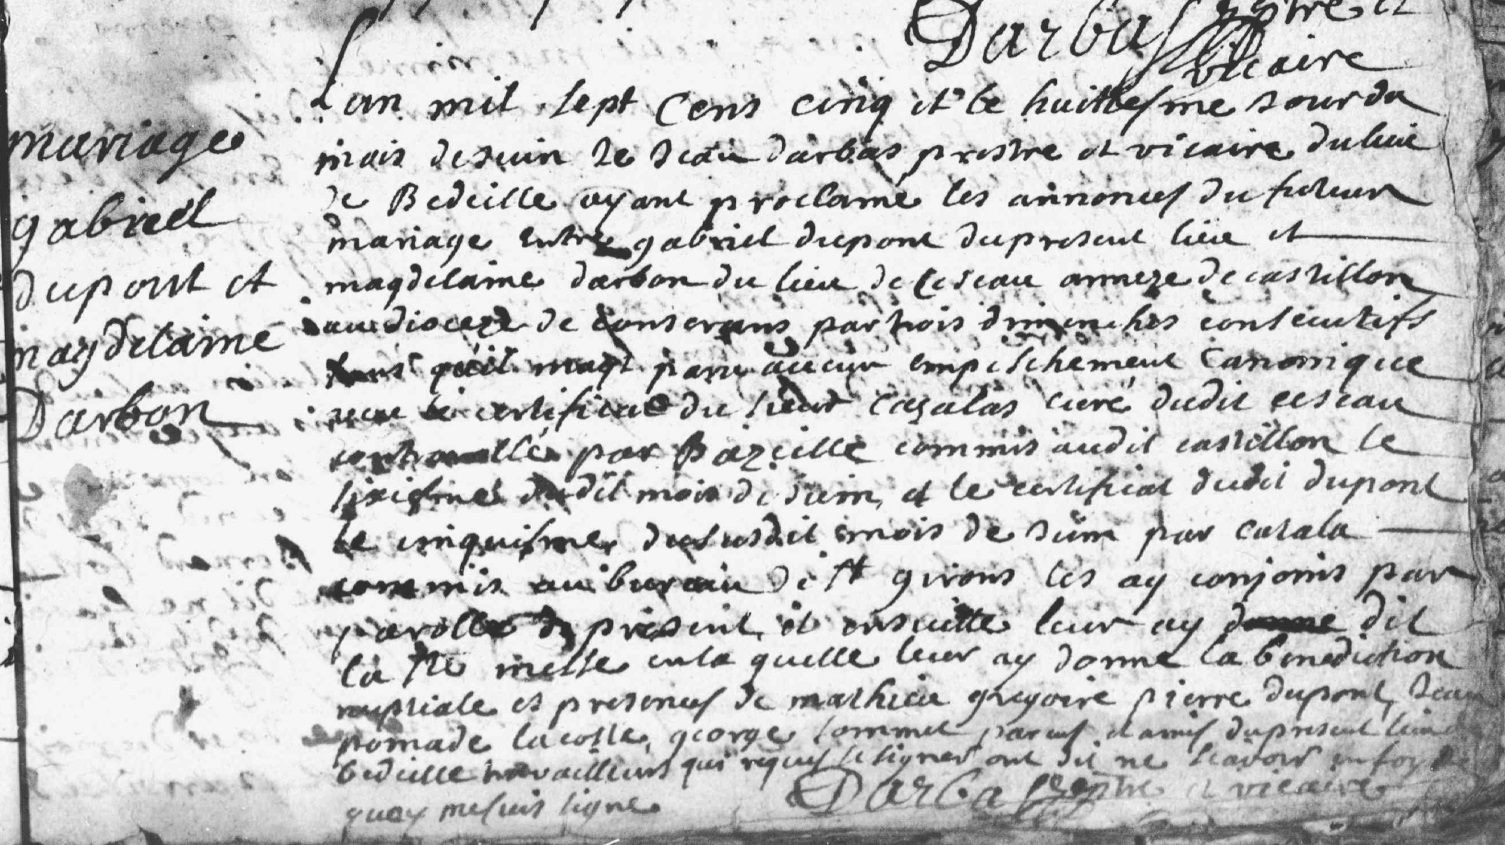 Darbas prestre et
vicaire
mariage
gabriel
dupont et
magdelaine
Darbon
Lan mil sept Cens cinq et le huittiesme Jour du
mois de Juin Je Jean darbas prestre et vicaire du lieu
de Bedeille ayant proclamé les annonces du futeur
mariage entre gabriel dupont du present lieu et
magdelaine darbon du lieu de Cescau annexe de castillon
au dioceze de Conserans par trois dimenches consecutifs
sans quil m'ayt paru aucun empeschement Canonique
veu le certificat du sieur Cazalas curé dudit cescau
controollé par Bazeille commis audit castillon le
sixiesme dudit mois de Juin, et le certificat dudit dupont
le cinquiesme du susdit mois de Juin par Cazala
commis au bureau de st girons les ay conjoins par
parolle de present, et ensuitte leur ay dit
la ste messe en la quelle leur ay donné la benediction
nuptiale es presences de mathieu gregoire pierre dupont, Jean
pomade lacoste, george sommet parens et amis du present lieu de
bedeille travailleurs qui requis de signer ont dit ne scavoir en foy de
quoy me suis signé Darbas prestre et vicaire